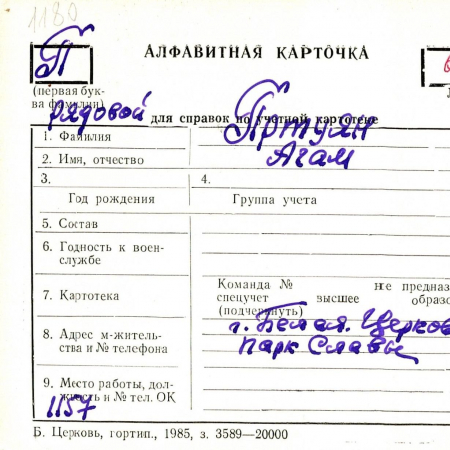 1180
П
АЛФАВИТНАЯ КАРТОЧКА
(первая бук-
ва фамилии)
рядовой для справок по учетной картотеке
1. Фамилия Пртуян
2. Имя, отчество Агам
3. 4.
Год рождения Группа учета
5. Состав
6. Годность к воен-
службе
7. Картотека
Команда № не предназ
спецучет высшее образо
(подчеркнуть)
8. Адрес м-житель-
ства и № телефона
г. Белая Церков
парк Славы
9. Место работы, дол-
жность и № тел. ОК
1157
Б. Церковь, гортип., 1985, з. 3589—20000